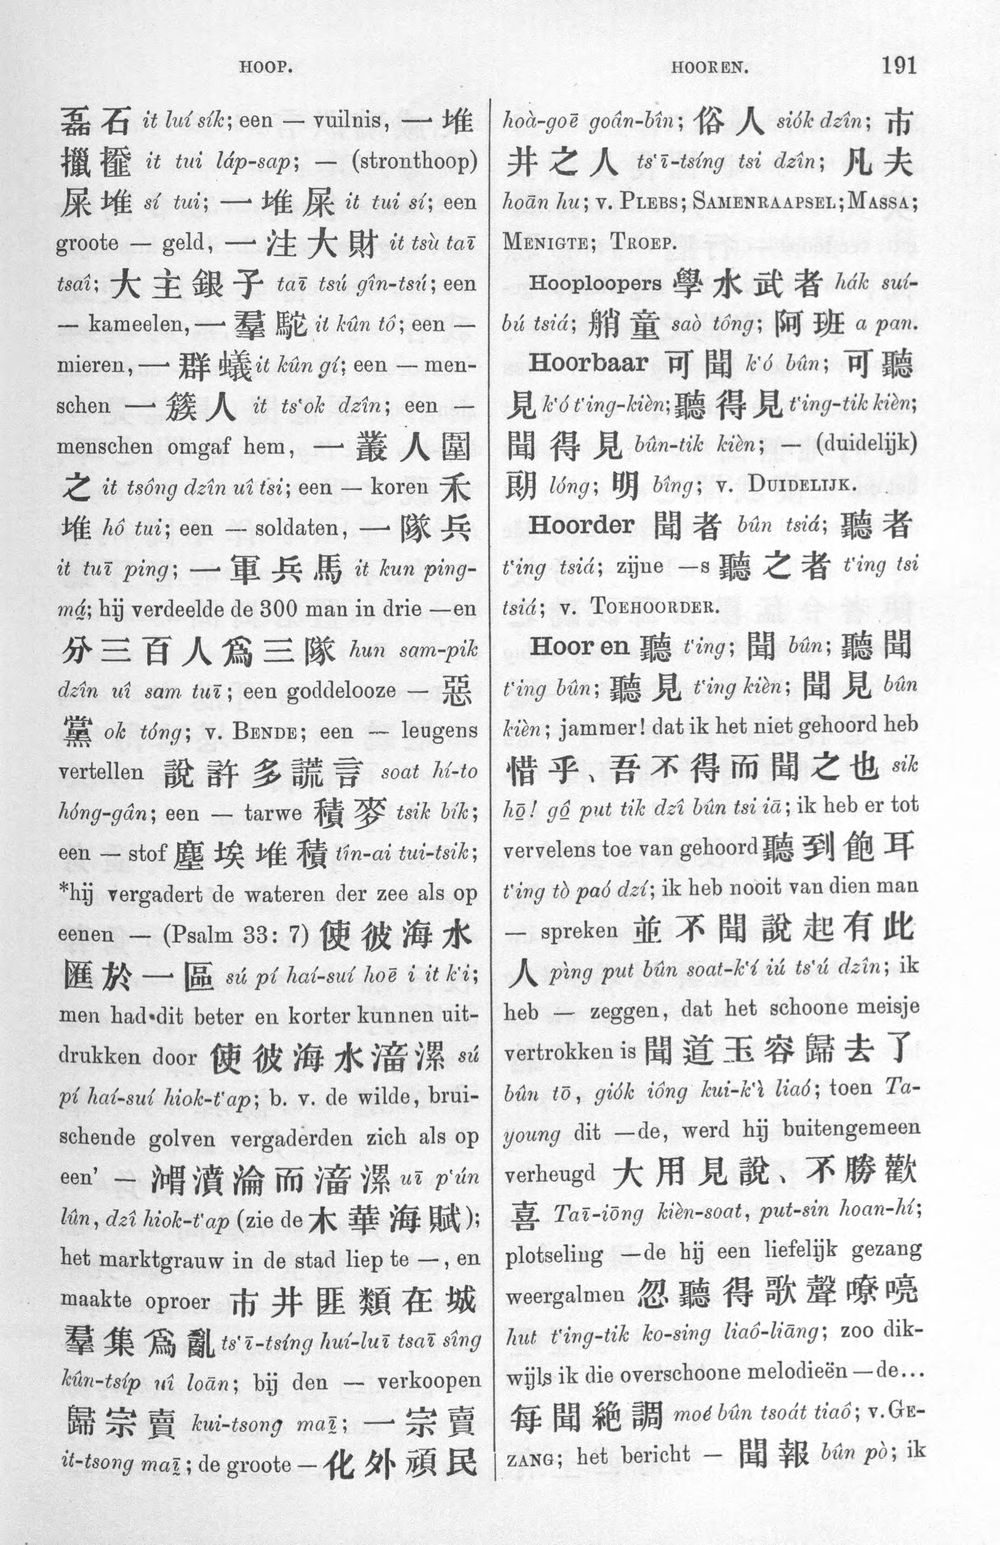 HOOP.
HOOREN.
191
磊石 it luí sík; een — vuilnis, 一堆
擸𢶍 it tui láp-sap; — (stronthoop)
屎堆 sí tui; 一堆屎 it tui sí; een
groote — geld, 一注大財 it tsù taī
tsaî; 大主銀子 taī tsú gîn-tsú; een
— kameelen, 一羣駝 it kûn tô; een —
mieren, 一群蟻 it kûn gí; een — men-
schen 一簇人 it ts‘ok dzîn; een —
menschen omgaf hem, 一叢人圍
之 it tsông dzîn uî tsi; een — koren 禾
堆 hô tui; een — soldaten, 一隊兵
it tuī ping; 一軍兵馬 it kun ping-
má; hij verdeelde de 300 man in drie —en
分三百人爲三隊 hun sam-pik
dzîn uî sam tuī; een goddelooze — 惡
黨 ok tóng; v. BENDE; een — leugens
vertellen 說許多謊言 soat hí-to
hóng-gân; een — tarwe 積麥 tsik bík;
een — stof 塵埃堆積 tîn-ai tui-tsik;
*hij vergadert de wateren der zee als op
eenen — (Psalm 33: 7) 使彼海水
匯於一區 sú pí haí-suí hoē i it k‘i;
men had dit beter en korter kunnen uit-
drukken door 使彼海水濇漯 sú
pí haí-suí hiok-t‘ap; b. v. de wilde, brui-
schende golven vergaderden zich als op
een’ — 渭濆淪而濇漯 uī p‘ún
lûn, dzî hiok-t‘ap (zie de 木華海賦);
het marktgrauw in de stad liep te —, en
maakte oproer 市井匪類在城
羣集爲亂 ts‘ī-tsíng huí-luī tsaī sîng
kûn-tsíp uî loān; bij den — verkoopen
歸宗賣 kui-tsong maī; 一宗賣
it-tsong maī; de groote — 化外頑民
hoà-goē goân-bîn; 俗人 siók dzîn; 市
井之人 ts‘ī-tsíng tsi dzîn; 凡夫
hoān hu; v. PLEBS; SAMENRAAPSEL; MASSA;
MENIGTE; TROEP.
Hooploopers 學水武者 hák suí-
bú tsiá; 艄童 saò tông; 阿班 a pan.
Hoorbaar 可聞 k‘ó bûn; 可聽
見 k‘ó t‘ing-kièn; 聽得見 t‘ing-tik kièn;
聞得見 bûn-tik kièn; — (duidelijk)
朗 lóng; 明 bîng; v. DUIDELIJK.
Hoorder 聞者 bûn tsiá; 聽者
t‘ing tsiá; zijne —s 聽之者 t‘ing tsi
tsiá; v. TOEHOORDER.
Hooren 聽 t‘ing; 聞 bûn; 聽聞
t‘ing bûn; 聽見 t‘ing kièn; 聞見 bûn
kièn; jammer! dat ik het niet gehoord heb
惜乎、吾不得而聞之也 sik
hō! gô put tik dzî bûn tsi iā; ik heb er tot
vervelens toe van gehoord 聽到飽耳
t‘ing tò paó dzí; ik heb nooit van dien man
— spreken 並不聞說起有此
人 pìng put bûn soat-k‘í iú ts‘ú dzîn; ik
heb — zeggen, dat het schoone meisje
vertrokken is 聞道玉容歸去了
bûn tō, giók iông kui-k‘ì liaó; toen Ta-
young dit —de, werd hij buitengemeen
verheugd 大用見說、不勝歡
喜 Taī-iōng kièn-soat, put-sin hoan-hí;
plotseling —de hij een liefelijk gezang
weergalmen 忽聽得歌聲嘹喨
hut t‘ing-tik ko-sing liaô-liāng; zoo dik-
wijls ik die overschoone melodieën —de...
每聞絶調 moé bûn tsoát tiaô; v. GE-
ZANG; het bericht — 聞報 bûn pò; ik